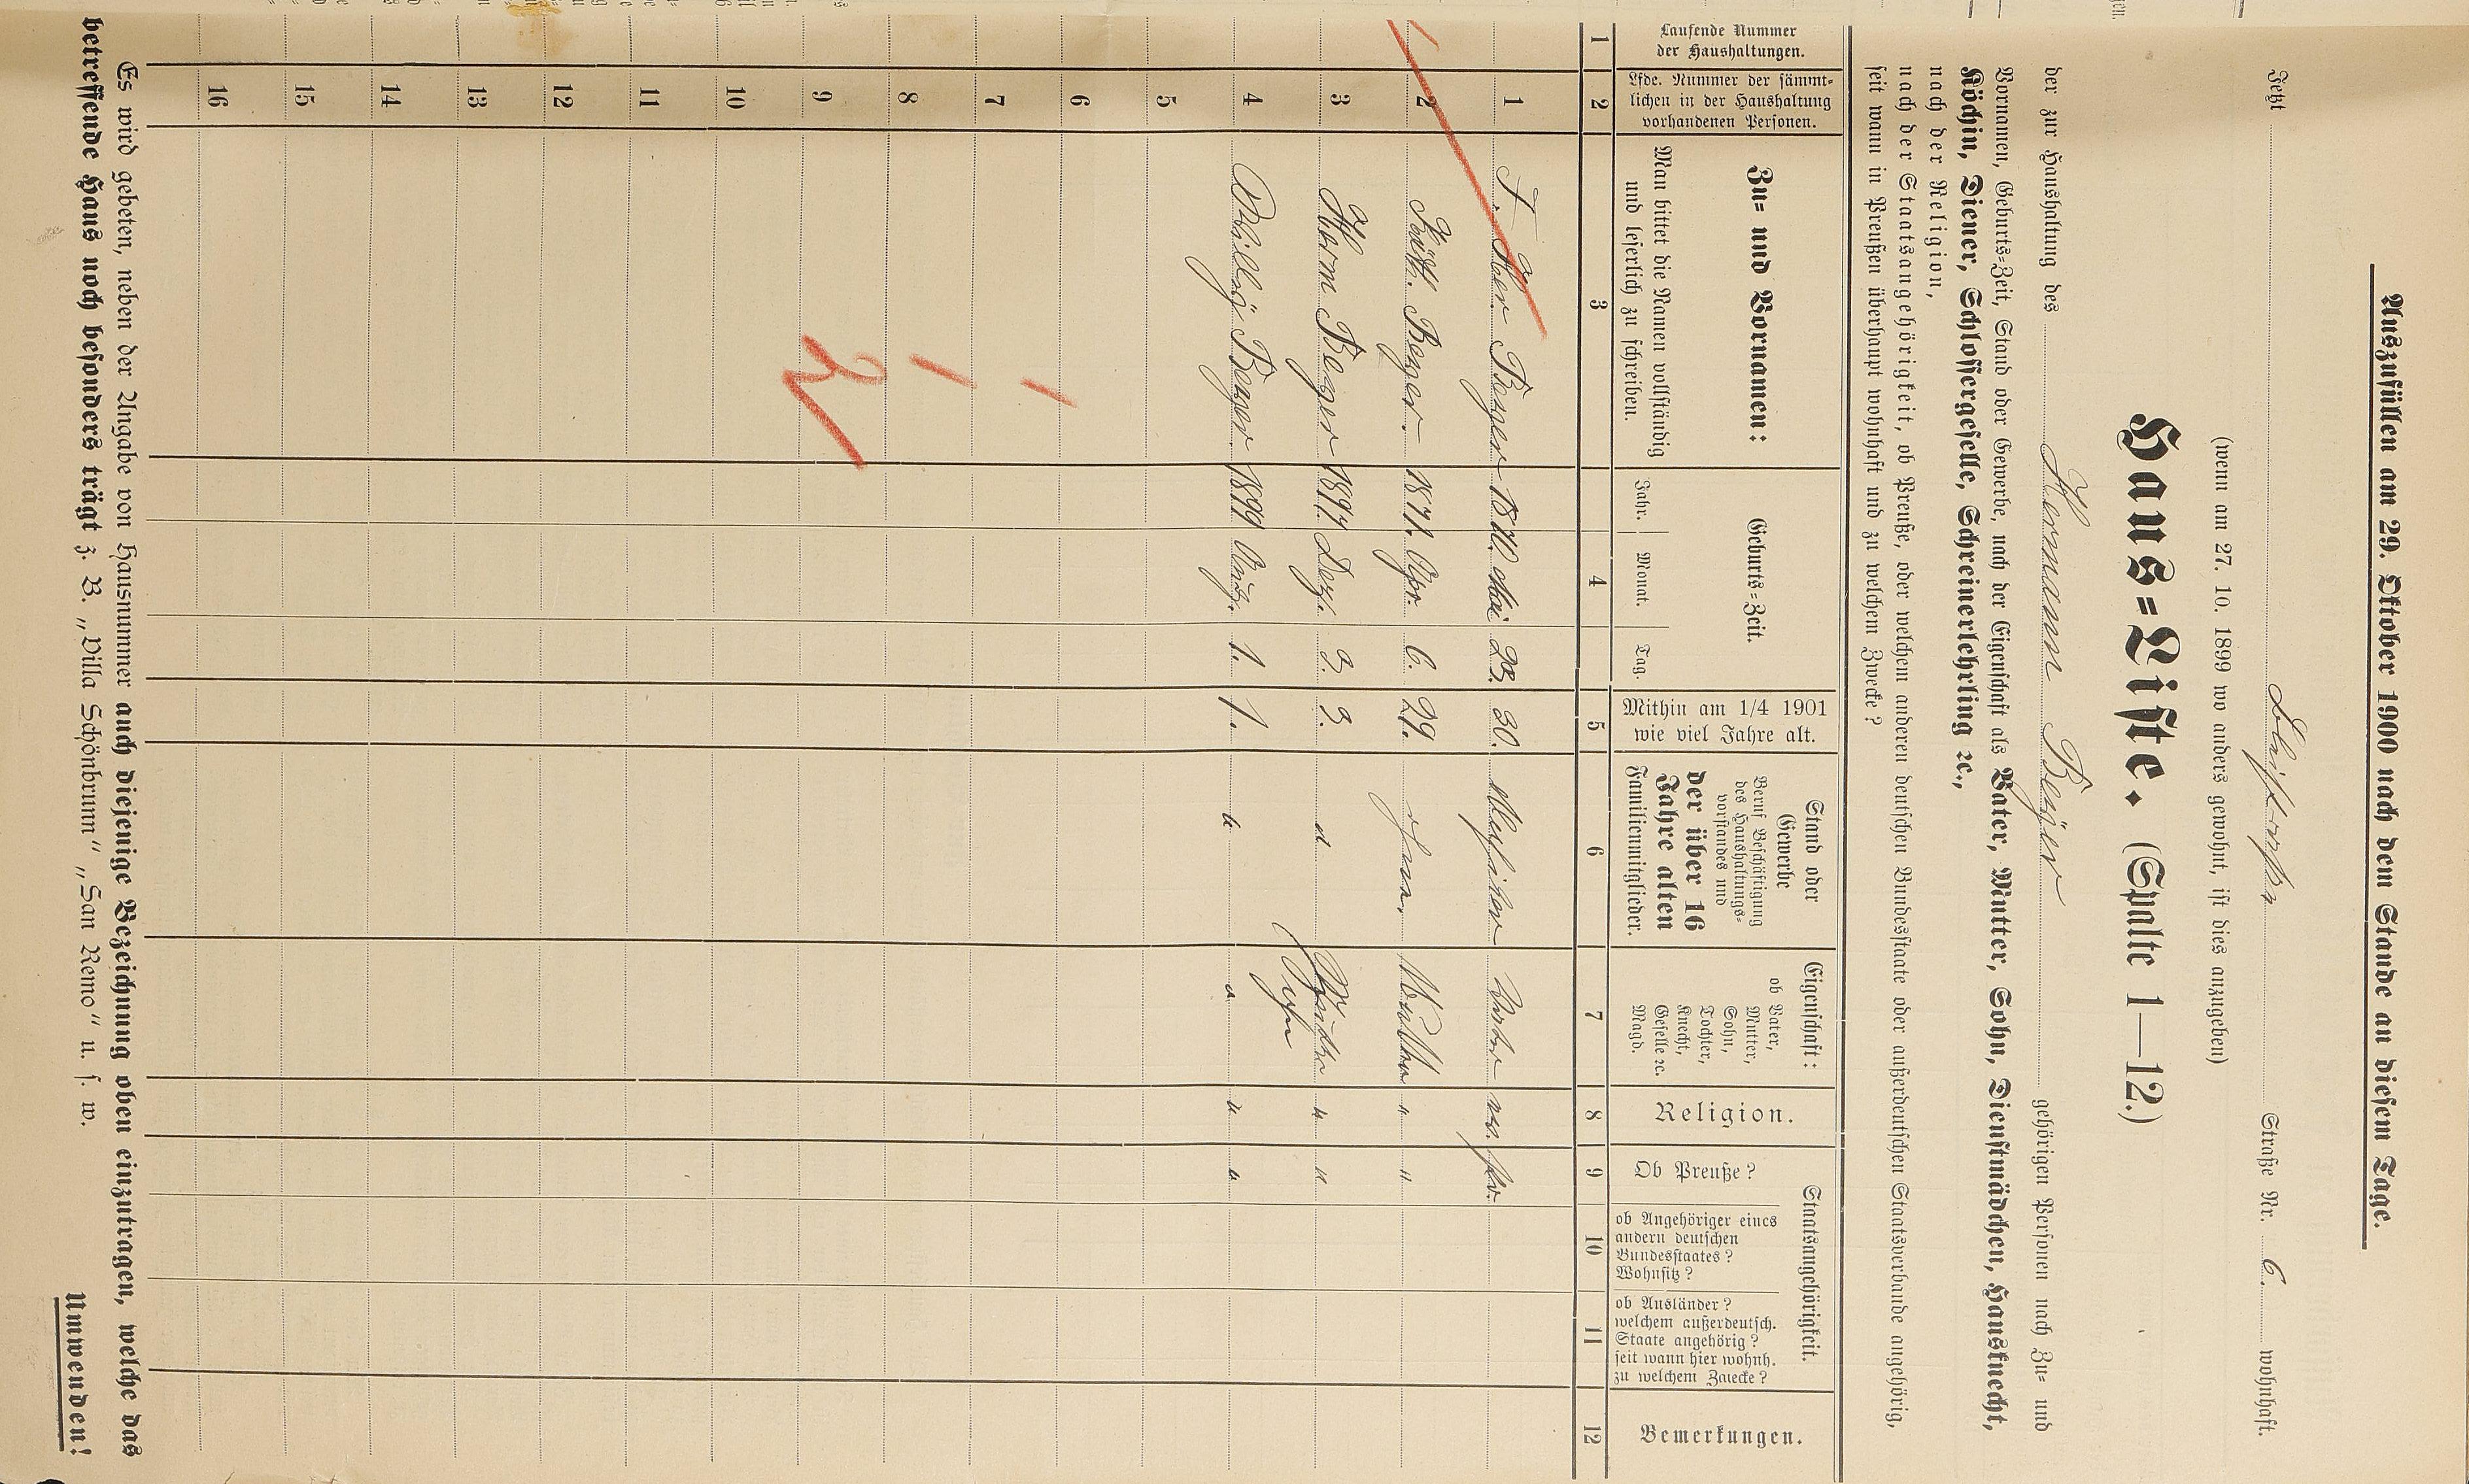 Auszufüllen am 29. Oktober 1900 nach dem Stande an diesem Tage.
Jetzt Straße Nr. 6. wohnhaft.
(wenn am 27. 10. 1899 wo anders gewohnt, ist dies anzugeben)
Haus=Liste. (Spalte 1—12.)
der zur Haushaltung des Hermann Beyer gehörigen Personen nach Zu= und
Vornamen, Geburts=Zeit, Stand oder Gewerbe, nach der Eigenschaft als Vater, Mutter, Sohn, Dienstmädchen, Hausknecht,
Köchin, Diener, Schlossergeselle, Schreinerlehrling ꝛc.,
nach der Religion,
nach der Staatsangehörigkeit, ob Preuße, oder welchem anderen deutschen Bundesstaate oder außerdeutschen Staatsverbande angehörig,
seit wann in Preußen überhaupt wohnhaft und zu welchem Zwecke?
Laufende Nummer
der Haushaltungen.
Lfde. Nummer der sämmt=
lichen in der Haushaltung
vorhandenen Personen.
Zu= und Vornamen:
Man bittet die Namen vollständig
und leserlich zu schreiben.
Geburts=Zeit.
Jahr. Monat. Tag.
Mithin am 1/4 1901
wie viel Jahre alt.
Stand oder
Gewerbe
Beruf Beschäftigung
des Haushaltungs=
vorstandes und
der über 16
Jahre alten
Familienmitglieder.
Eigenschaft:
ob Vater,
Mutter,
Sohn,
Tochter,
Knecht,
Geselle ꝛc.
Magd.
Religion.
Staatsangehörigkeit.
Ob Preuße?
ob Angehöriger eines
andern deutschen
Bundesstaates?
Wohnsitz?
ob Ausländer?
welchem außerdeutsch.
Staate angehörig?
seit wann hier wohnh.
zu welchem Zwecke?
Bemerkungen.
1 2 3 4 5 6 7 8 9 10 11 12
1 Her. Beyer 1870. Mai 23. 30. Vater
2 Kath. Beyer 1871. Apr. 6. 29. Mutter " "
3 Herm Beyer 1897 Dez. 3. 3. " " "
Sohn
4 Beyer 1899 1. 1. " " " "
5
6
7
8
9
10
11
12
13
14
15
16
Es wird gebeten, neben der Angabe von Hausnummer auch diejenige Bezeichnung oben einzutragen, welche das
betreffende Haus noch besonders trägt z. B. „Villa Schönbrunn“ „San Remo“ u. s. w.
Umwenden!